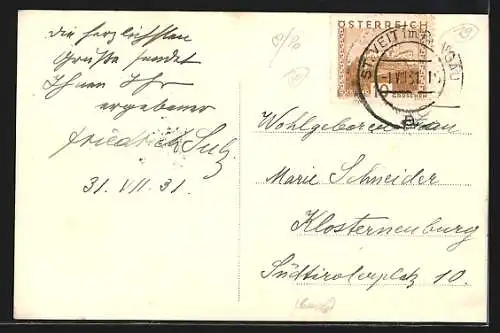 die herzlichsten
Grüße sendet
Ihnen Ihr
ergebener
Friedrich Sulz
31. VII. 31.
ÖSTERREICH
10
ST. VEIT im PONGAU
-1.VIII.31
Wohlgeboren Frau
Marie Schneider
Klosterneuburg
Südtirolerplatz 10.